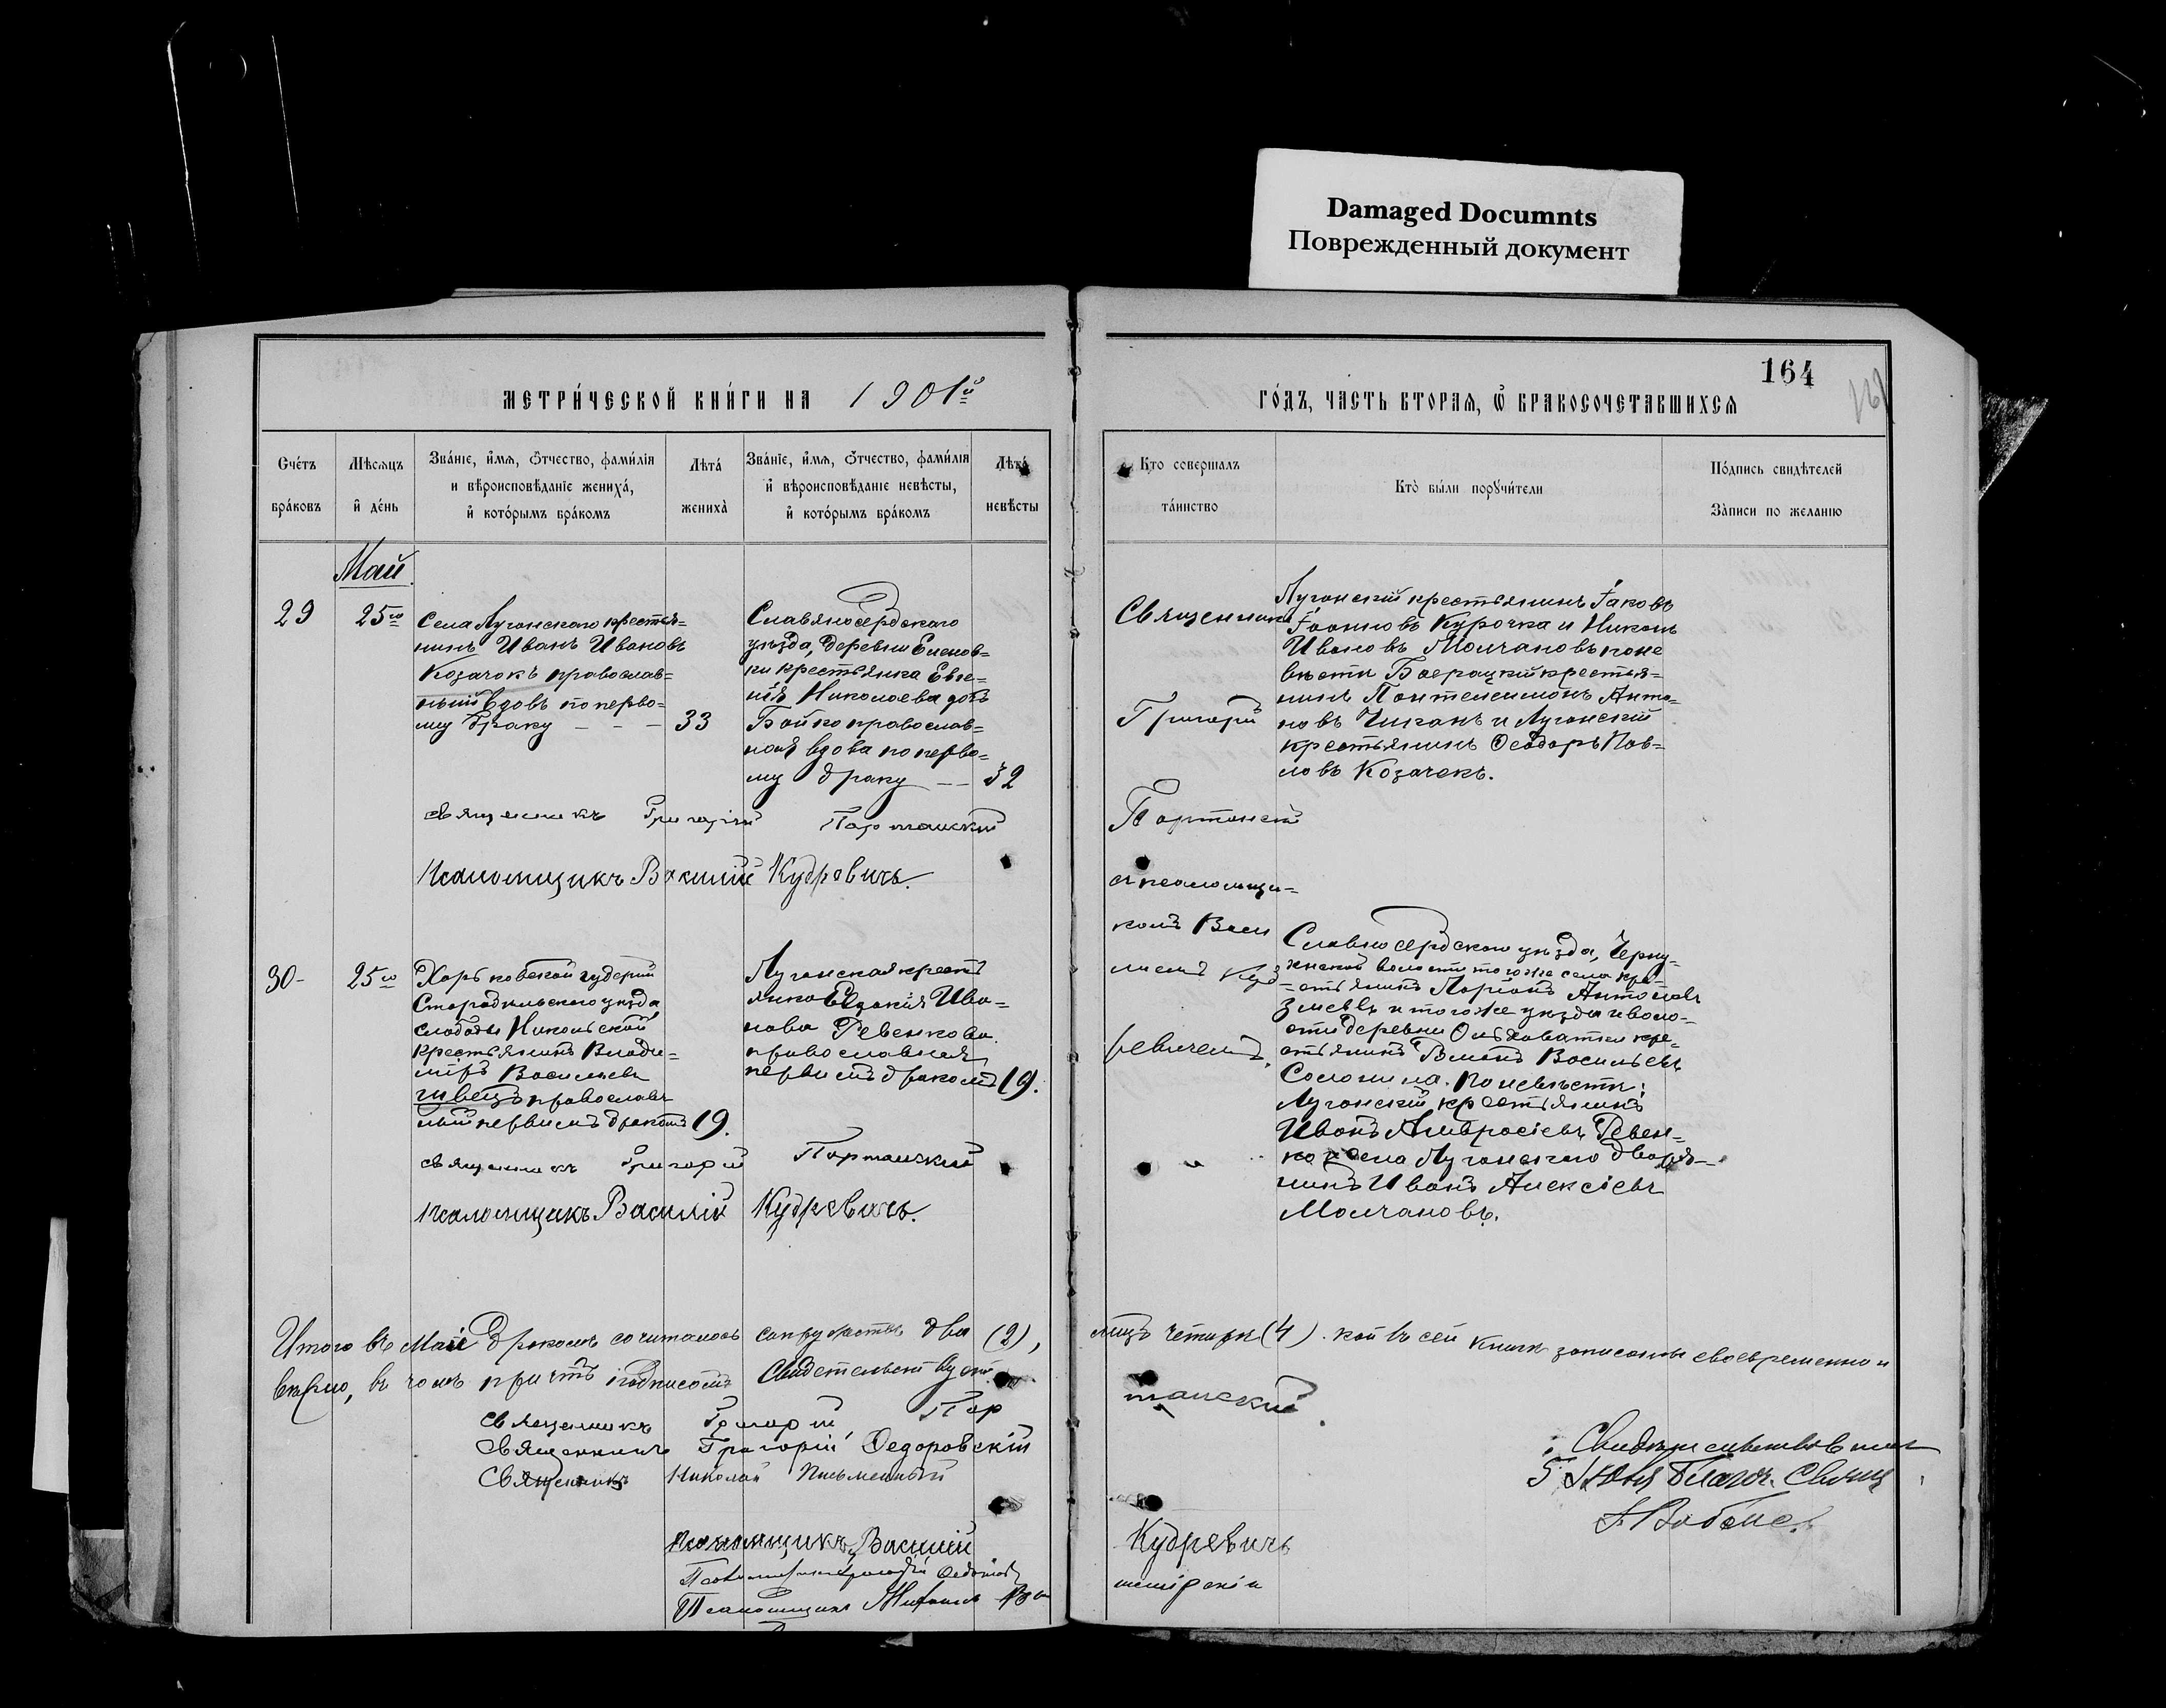 Damaged Documnts
Поврежденный документ
164
МЕТРИ́ЧЕСКОЙ КНИ́ГИ НА 1901й
ГО́ДЪ, ЧАСТЬ ВТОРАѦ, Ѡ҆ БРАКОСОЧЕТАВШИХСѦ
Сче́тъ бра́ковъ
Мѣ́сѧцъ и҆ де́нь
Зва́нїе, и҆́мѧ, ѻ҆́тчество, фами́лїѧ
и вѣроисповѣ́данїе жениха́,
и҆ кото́рымъ бра́комъ
Лѣта́ жениха̀
Зва́нїе, и҆́мѧ, ѻ҆́тчество, фами́лїѧ
и҆ вѣроисповѣ́данїе невѣ́сты,
и҆ кото́рымъ бра́комъ
Лѣта́ невѣ́сты
Кто совершалъ
та́инство
Кто̀ бы́ли порꙋчи́тели
По́дпись свидѣ́телей
За̀писи по желанію
Май
29
25го
Села Луганскаго крестья=
нинъ Иванъ Ивановъ
Козачокъ православ=
ный вдовъ по перво=
му браку - - - 33
Славяносербскаго
уѣзда, деревни Еленов=
ки крестьянка Евге=
нія Николаева дочь
Бойко православ=
ная вдова по перво=
му браку -- 32
Священникъ
Григорій
Портанскій
съ псаломщи=
комъ Васи
ліемъ Куд=
ревичемъ
Луганскій крестьянинъ Іаковъ
Іоанновъ Курочка и Никонъ
Ивановъ Молчановъ по не
вѣсти Боерацкій крестья=
нинъ Пантелеимонъ Анто=
новъ Чиканъ и Луганскій
крестьянинъ Ѳеодоръ Пав=
ловъ Козачекъ.
священникъ Григорій Портанскій
Псаломщикъ Василій Кудревичъ.
30-
25го
Харьковской губерніи
Старобѣльскаго уѣзда
слободы Никольской
крестьянинъ Влади=
міръ Васильевъ
Швецъ православ
ный первымъ бракомъ 19.
Луганская кресть
янка Евдокія Ива=
нова Ревенкова
православная
первымъ бракомъ 19.
Славяносербскаго уѣзда, Черну=
хинской волости того же села кре=
стьянинъ Ларіонъ Антоновъ
Змѣевъ и того же уѣзда и воло=
сти деревни Ольховатки кре=
стьянинъ Романъ Васильевъ
Солонина. По невѣсти:
Луганскій крестьянинъ
Иванъ Амвросіевъ Ревен=
ко и села Луганскаго дворя=
нинъ Иванъ Алексіевъ
Молчановъ.
священникъ Григорій Портанскій
Псаломщикъ Василій Кудревичъ.
Итого въ Маѣ бракомъ сочиталось супружествъ два (2), лицъ четыре (4). кои въ сей книгѣ записаны своевременно и
вѣрно, въ чемъ причтъ подписомъ свидетельствуетъ.
священникъ Григорій Портанскій.
Священникъ Григорій Ѳедоровскій
Священникъ Николай Письменный
Псаломщикъ Василій Кудревичъ
Псаломщикъ Михаилъ
Свидѣтельствовалъ
5 Іюня Благоч. Свящ